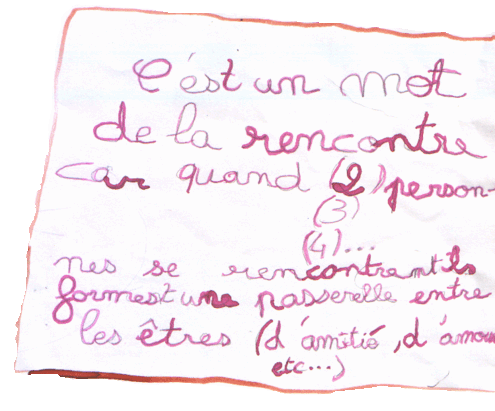 C'est un mot
de la rencontre
car quand (2) person-
(3)
(4)...
nes se rencontrent ils
forment une passerelle entre
les êtres (d'amitié, d'amour
etc...)